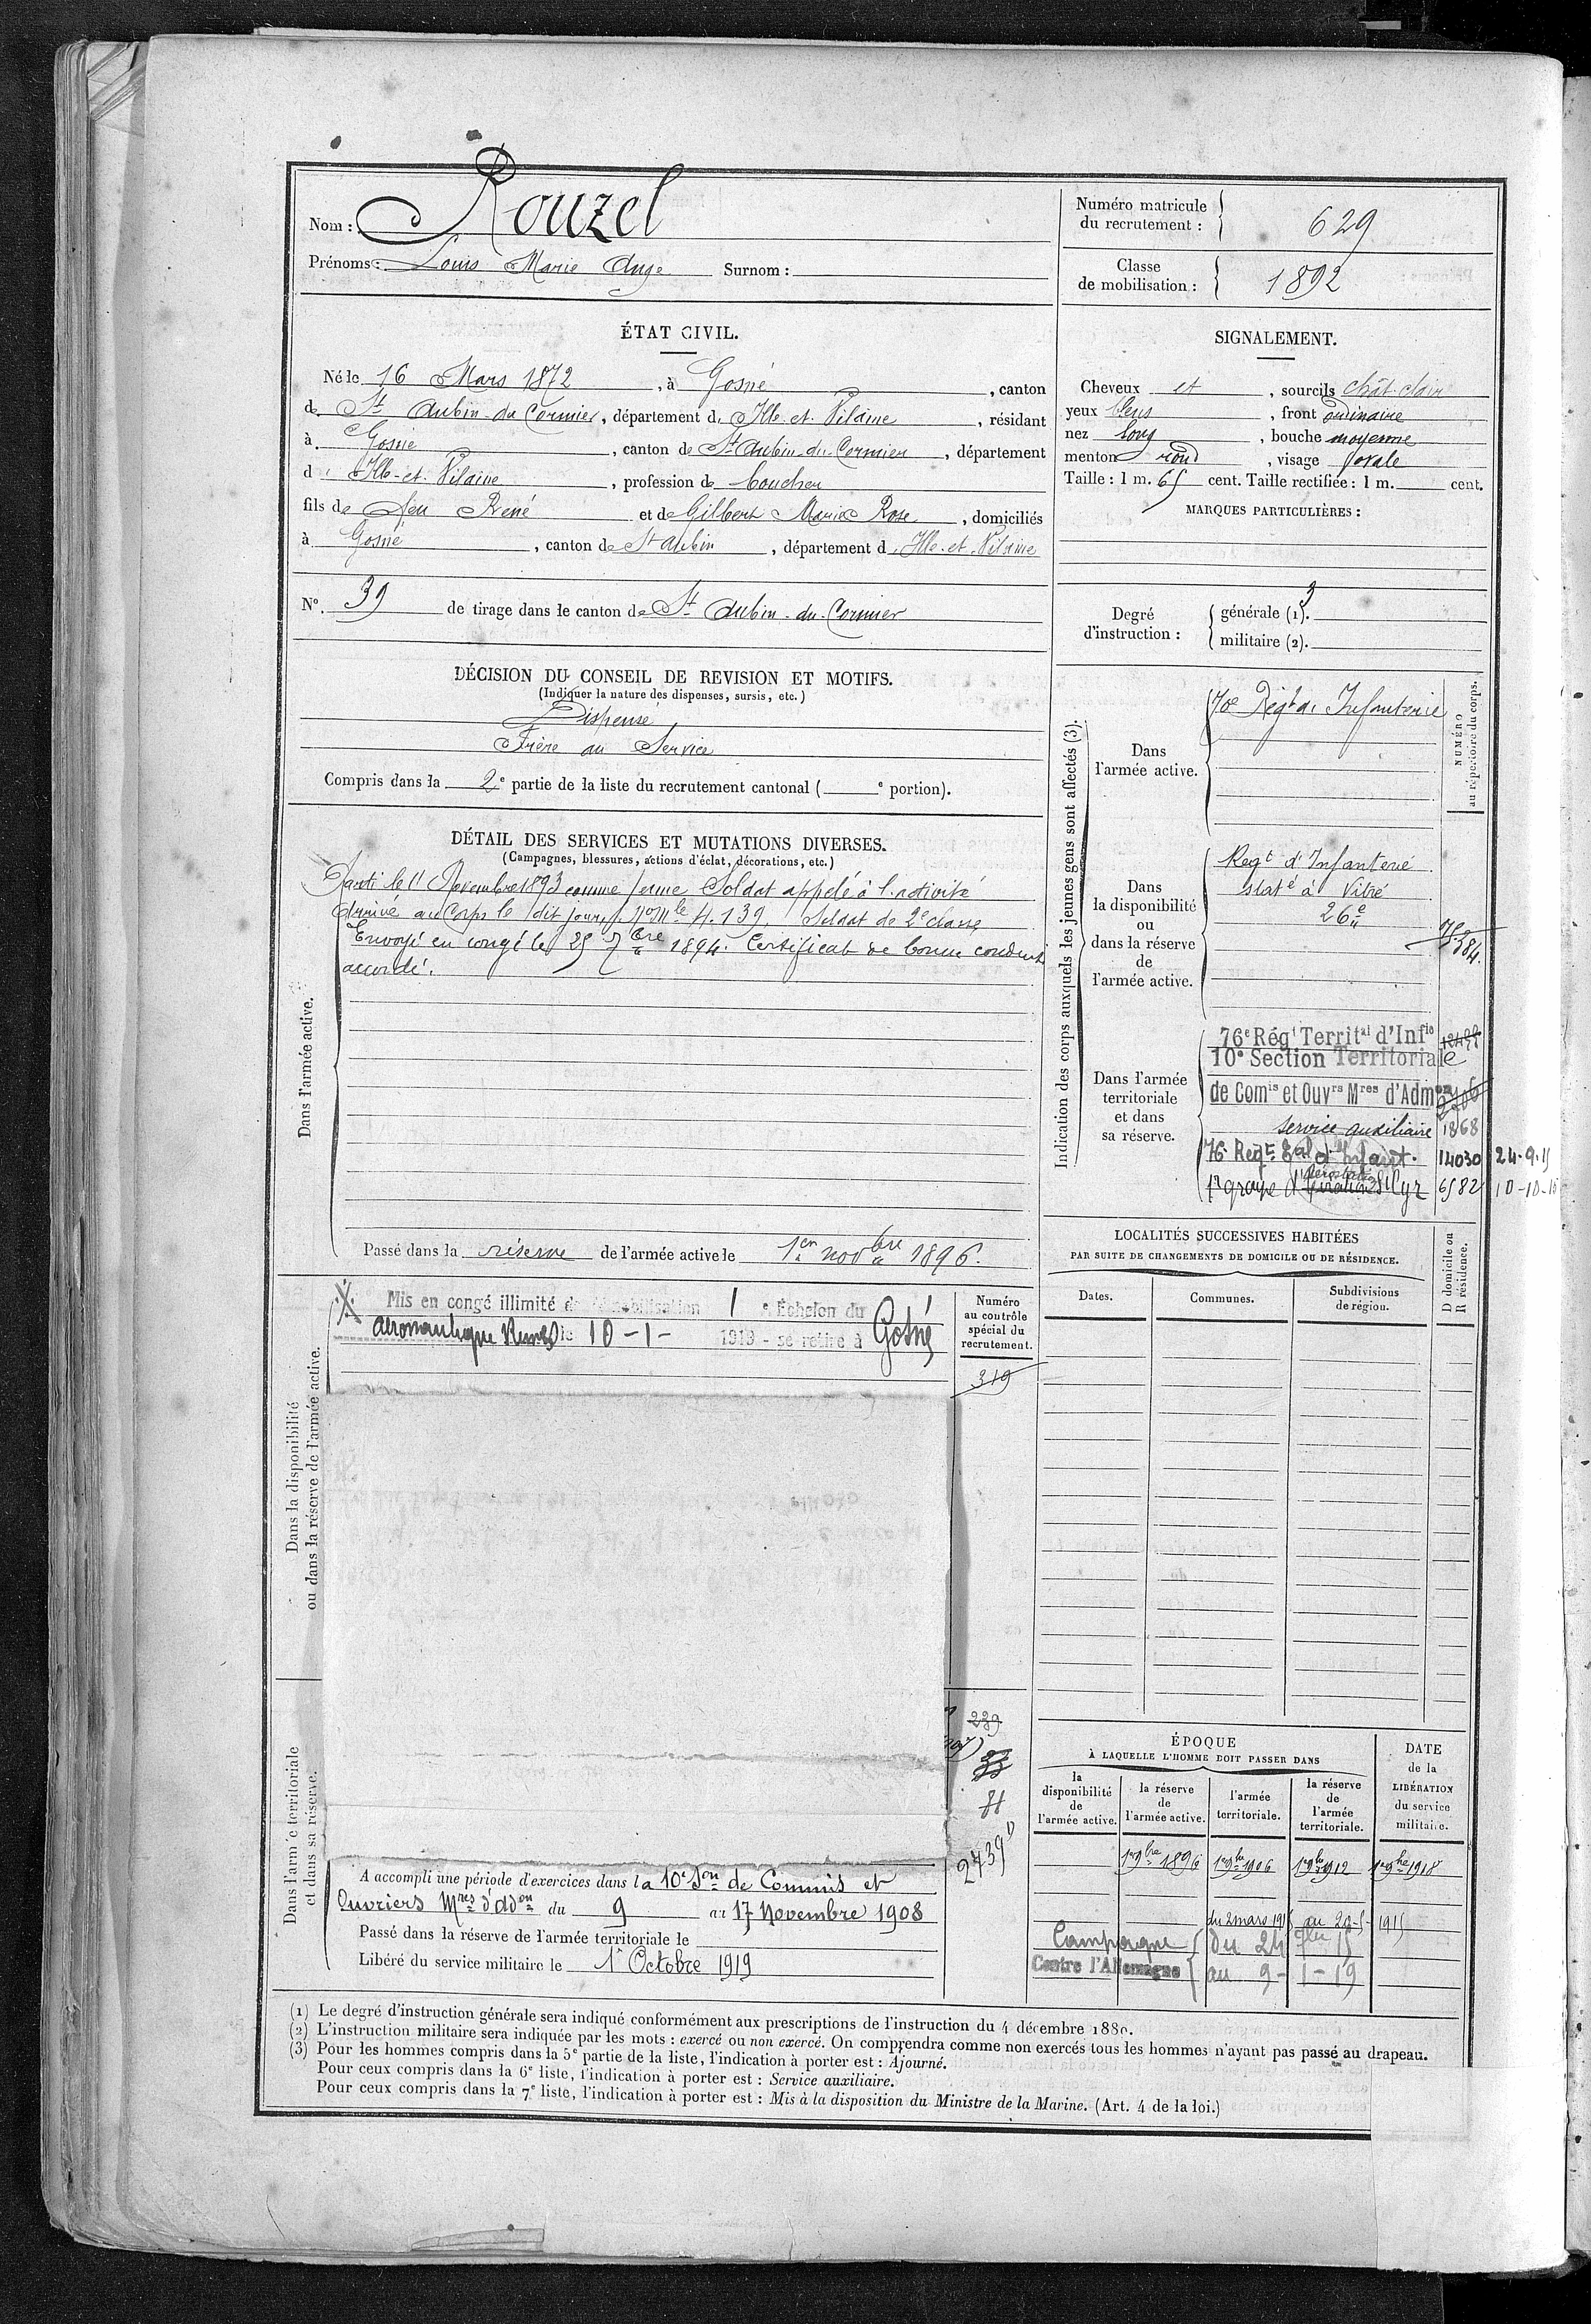 Nom : Rouzel
Prénoms : Louis Marie Ange Surnom :
Numéro matricule
du recrutement : 629
Classe
de mobilisation : 1892
ÉTAT CIVIL.
Né le 16 Mars 1872, à Gosné, canton
de St Aubin-du-Cormier, département d'Ille-et-Vilaine, résidant
à Gosné, canton de St Aubin-du-Cormier, département
d'Ille-et-Vilaine, profession de boucher
fils de feu René et de Gilbert Marie Rose, domiciliés
à Gosné, canton de St Aubin, département d'Ille-et-Vilaine
N°. 39 de tirage dans le canton de St Aubin-du-Cormier
SIGNALEMENT.
Cheveux et, sourcils chât-clair
yeux bleus, front ordinaire
nez long, bouche moyenne
menton rond, visage ovale
Taille : 1 m. 65 cent. Taille rectifiée : 1 m. cent.
MARQUES PARTICULIÈRES :
Degré
d'instruction :
générale (1). 3
militaire (2).
DÉCISION DU CONSEIL DE REVISION ET MOTIFS.
(Indiquer la nature des dispenses, sursis, etc.)
Dispensé
Frère au Service
Compris dans la 2e partie de la liste du recrutement cantonal ( e portion).
DÉTAIL DES SERVICES ET MUTATIONS DIVERSES.
(Campagnes, blessures, actions d'éclat, décorations, etc.)
Dans l'armée active.
Parti le 11 Novembre 1893 comme jeune Soldat appelé à l'activité
Arrivé au Corps le dit jour, No Mle 4.139. Soldat de 2e classe
Envoyé en congé le 25 7bre 1894. Certificat de bonne conduite
accordé.
Passé dans la réserve de l'armée active le 1er novbre 1896.
Indication des corps auxquels les jeunes gens sont affectés (3).
NUMÉRO
au répertoire du corps.
Dans
l'armée active.
70e Régt d'Infanterie
Dans
la disponibilité
ou
dans la réserve
de
l'armée active.
Regt d'Infanterie
staté à Vitré
26e
Dans l'armée
territoriale
et dans
sa réserve.
76e Régt Territal d'Infie
10e Section Territoriale
de Comis et Ouvrs Mres d'Admon
service auxiliaire 1868
76 Regt Tal d'Infant. 14030 24-9-15
1r groupe d' St Cyr 6582 10-10-16
LOCALITÉS SUCCESSIVES HABITÉES
PAR SUITE DE CHANGEMENTS DE DOMICILE OU DE RÉSIDENCE.
Dates.
Communes.
Subdivisions
de région.
D domicile ou
R résidence.
Dans la disponibilité
ou dans la réserve de l'armée active.
Mis en congé illimité de démobilisation 1 e Échelon du
aéronautique Rennes le 10-1- 1919 - se retire à Gosné
Numéro
au contrôle
spécial du
recrutement.
319
239
81
2439
Dans l'armée territoriale
et dans sa réserve.
A accompli une période d'exercices dans la 10e Son de Commis et
Ouvriers Mres d'adon du 9 au 17 Novembre 1908
Passé dans la réserve de l'armée territoriale le
Libéré du service militaire le 1r Octobre 1919
ÉPOQUE
À LAQUELLE L'HOMME DOIT PASSER DANS
la
disponibilité
de
l'armée active.
la réserve
de
l'armée active.
l'armée
territoriale.
la réserve
de
l'armée
territoriale.
DATE
de la
LIBÉRATION
du service
militaire.
1r 9bre 1896 1r 9bre 1906 1r 9bre 1912 1r 9bre 1918
du 2 mars 1915 au 20-5-1915
Campagne du 24 7bre 15
Contre l'Allemagne au 9-1-19
(1) Le degré d'instruction générale sera indiqué conformément aux prescriptions de l'instruction du 4 décembre 1889.
(2) L'instruction militaire sera indiquée par les mots : exercé ou non exercé. On comprendra comme non exercés tous les hommes n'ayant pas passé au drapeau.
(3) Pour les hommes compris dans la 5e partie de la liste, l'indication à porter est : Ajourné.
Pour ceux compris dans la 6e liste, l'indication à porter est : Service auxiliaire.
Pour ceux compris dans la 7e liste, l'indication à porter est : Mis à la disposition du Ministre de la Marine. (Art. 4 de la loi.)